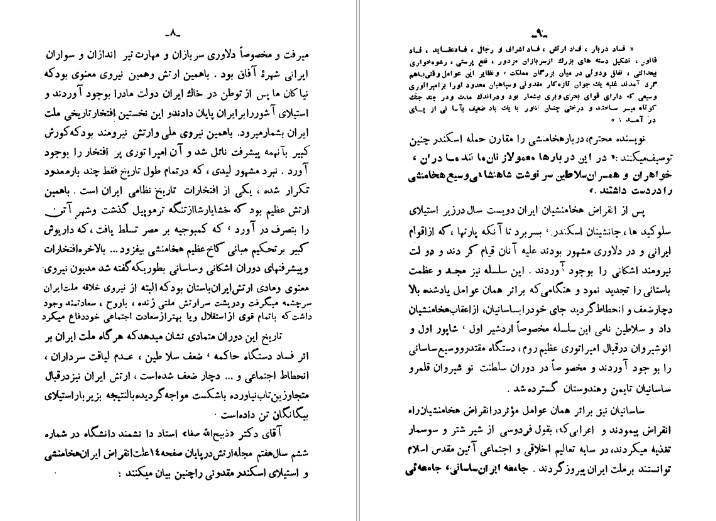 -۸-
میرفت و مخصوصاً دلاوری سربازان و مهارت تیر اندازان و سواران
ایرانی شهرهٔ آفاق بود . باهمین ارتش وهمین نیروی معنوی بود که
نیاکان ما پس از توطن در خاك ایران دولت ماد را بوجود آوردند و
استیلای آشور را بر ایران پایان دادند و این نخستین افتخار تاریخی ملت
ایران بشمار میرود. باهمین نیروی ملی وارتش نیرومند بود که کورش
کبیر بآنهمه پیشرفت نائل شد و آن امپراتوری پر افتخار را بوجود
آورد . نبرد مشهور لیدی، که در تمام طول تاریخ فقط چند بار معدود
تکرار شده ، یکی از افتخارات تاریخ نظامی ایران است . باهمین
ارتش عظیم بود که خشایارشا از تنگه ترموپیل گذشت وشهر آتن
را بتصرف در آورد ، که کمبوجیه بر مصر تسلط یافت ، که داریوش
کبیر بر تحکیم مبانی کاخ عظیم هخامنشی بیفزود ... بالاخره افتخارات
و پیشرفتهای دوران اشکانی وساسانی بطوریکه گفته شد مدیون نیروی
معنوی ومادی ارتش ایران باستان بود که البته از نیروی خلاقه ملت ایران
سرچشمه میگرفت و در پشت سر ارتش ملتی زنده ، باروح ، سعادتمند وجود
داشت که باتمام قوی از استقلال و یا بهتر از سعادت اجتماعی خود دفاع میکرد
تاریخ این دوران متمادی نشان میدهد که هر گاه ملت ایران بر
اثر فساد دستگاه حاکمه ، ضعف سلاطین ، عدم لیاقت سرداران ،
انحطاط اجتماعی و ... دچار ضعف شده است ، ارتش ایران نیز در قبال
متجاوزین تاب نیاورده باشکست مواجه گردیده بالنتیجه بزیر بار استیلای
بیگانگان تن داده است .
آقای دکتر «ذبیح الله صفا» استاد دانشمند دانشگاه در شماره
ششم سال هفتم مجله ارتش در پایان صفحه ۱۴ علت انقراض ایران هخامنشی
و استیلای اسکندر مقدونی را چنین بیان میکنند :
-۹-
« فساد دربار ، فساد ارتش ، فساد اشراف و رجال ، فساد عقاید ، فساد
قانون ، تشکیل دسته های بزرگ از سربازان مزدور ، نفع پرستی ، رشوه خواری
نفاق ودوئی در میان بزرگان مملکت ، و نظایر این عوامل وقتی باهم
گرد آمدند غلبه یك جوان تازه کار مقدونی و سپاهیان معدود او را بر امپراتوری
وسیعی که دارای قوای بحری وبری بیشمار بود و در اندك مدت و در چند جنگ
کوتاه میسر ساختند و درختی چنان تناور با یك باد ضعیف بآسانی از پای
در آمد . »
نویسنده محترم، دربار هخامنشی را مقارن حمله اسکندر چنین
توصیف میکنند : « در این دربارها معمولا زنان مانند مادران ،
خواهران و همسران سلاطین سرنوشت شاهنشاهی وسیع هخامنشی
را در دست داشتند . »
پس از انقراض هخامنشیان ایران دویست سال در زیر استیلای
سلوکیدها ، جانشینان اسکندر بسر برد تا آنکه پارتها ، که از اقوام
ایرانی و در دلاوری مشهور بودند علیه آنان قیام کردند و دولت
نیرومند اشکانی را بوجود آوردند . این سلسله نیز مجد و عظمت
باستانی را تجدید نمود و هنگامی که بر اثر همان عوامل یاد شده بالا
دچار ضعف و انحطاط گردید جای خود را بساسانیان، از اعقاب هخامنشیان
داد و سلاطین نامی این سلسله مخصوصاً اردشیر اول ، شاپور اول و
انوشیروان در قبال امپراتوری عظیم روم ، دستگاه مقتدر و وسیع ساسانی
را بوجود آوردند و مخصوصاً در دوران سلطنت نوشیروان قلمرو
ساسانیان تایمن وهندوستان گسترده شد .
ساسانیان نیز بر اثر همان عوامل مؤثر در انقراض هخامنشیان راه
انقراض پیمودند و اعرابی که ، بقول فردوسی از شیر شتر و سوسمار
تغذیه میکردند، در سایه تعالیم اخلاقی و اجتماعی آئین مقدس اسلام
توانستند بر ملت ایران پیروز گردند . جامعه ایران ساسانی ، جامعه ئی